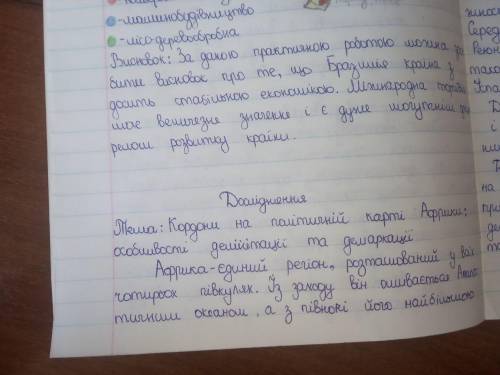 -машинобудівництво
-лісо-деревообробна
Висновок: За даною практичною роботою можна
бити висновок про те, що Бразилія країна з
досить стабільною економікою. Міжнародна
має величезне значення і є дуже могутнім
релом розвитку країни.
Дослідження
Тема: Кордони на політичній карті Африки:
особливості делімітації та демаркації
Африка-єдиний регіон, розташований у всіх
чотирьох півкулях. Із заходу він омивається Атлан
тичним океаном, а з півночі його найбільшою